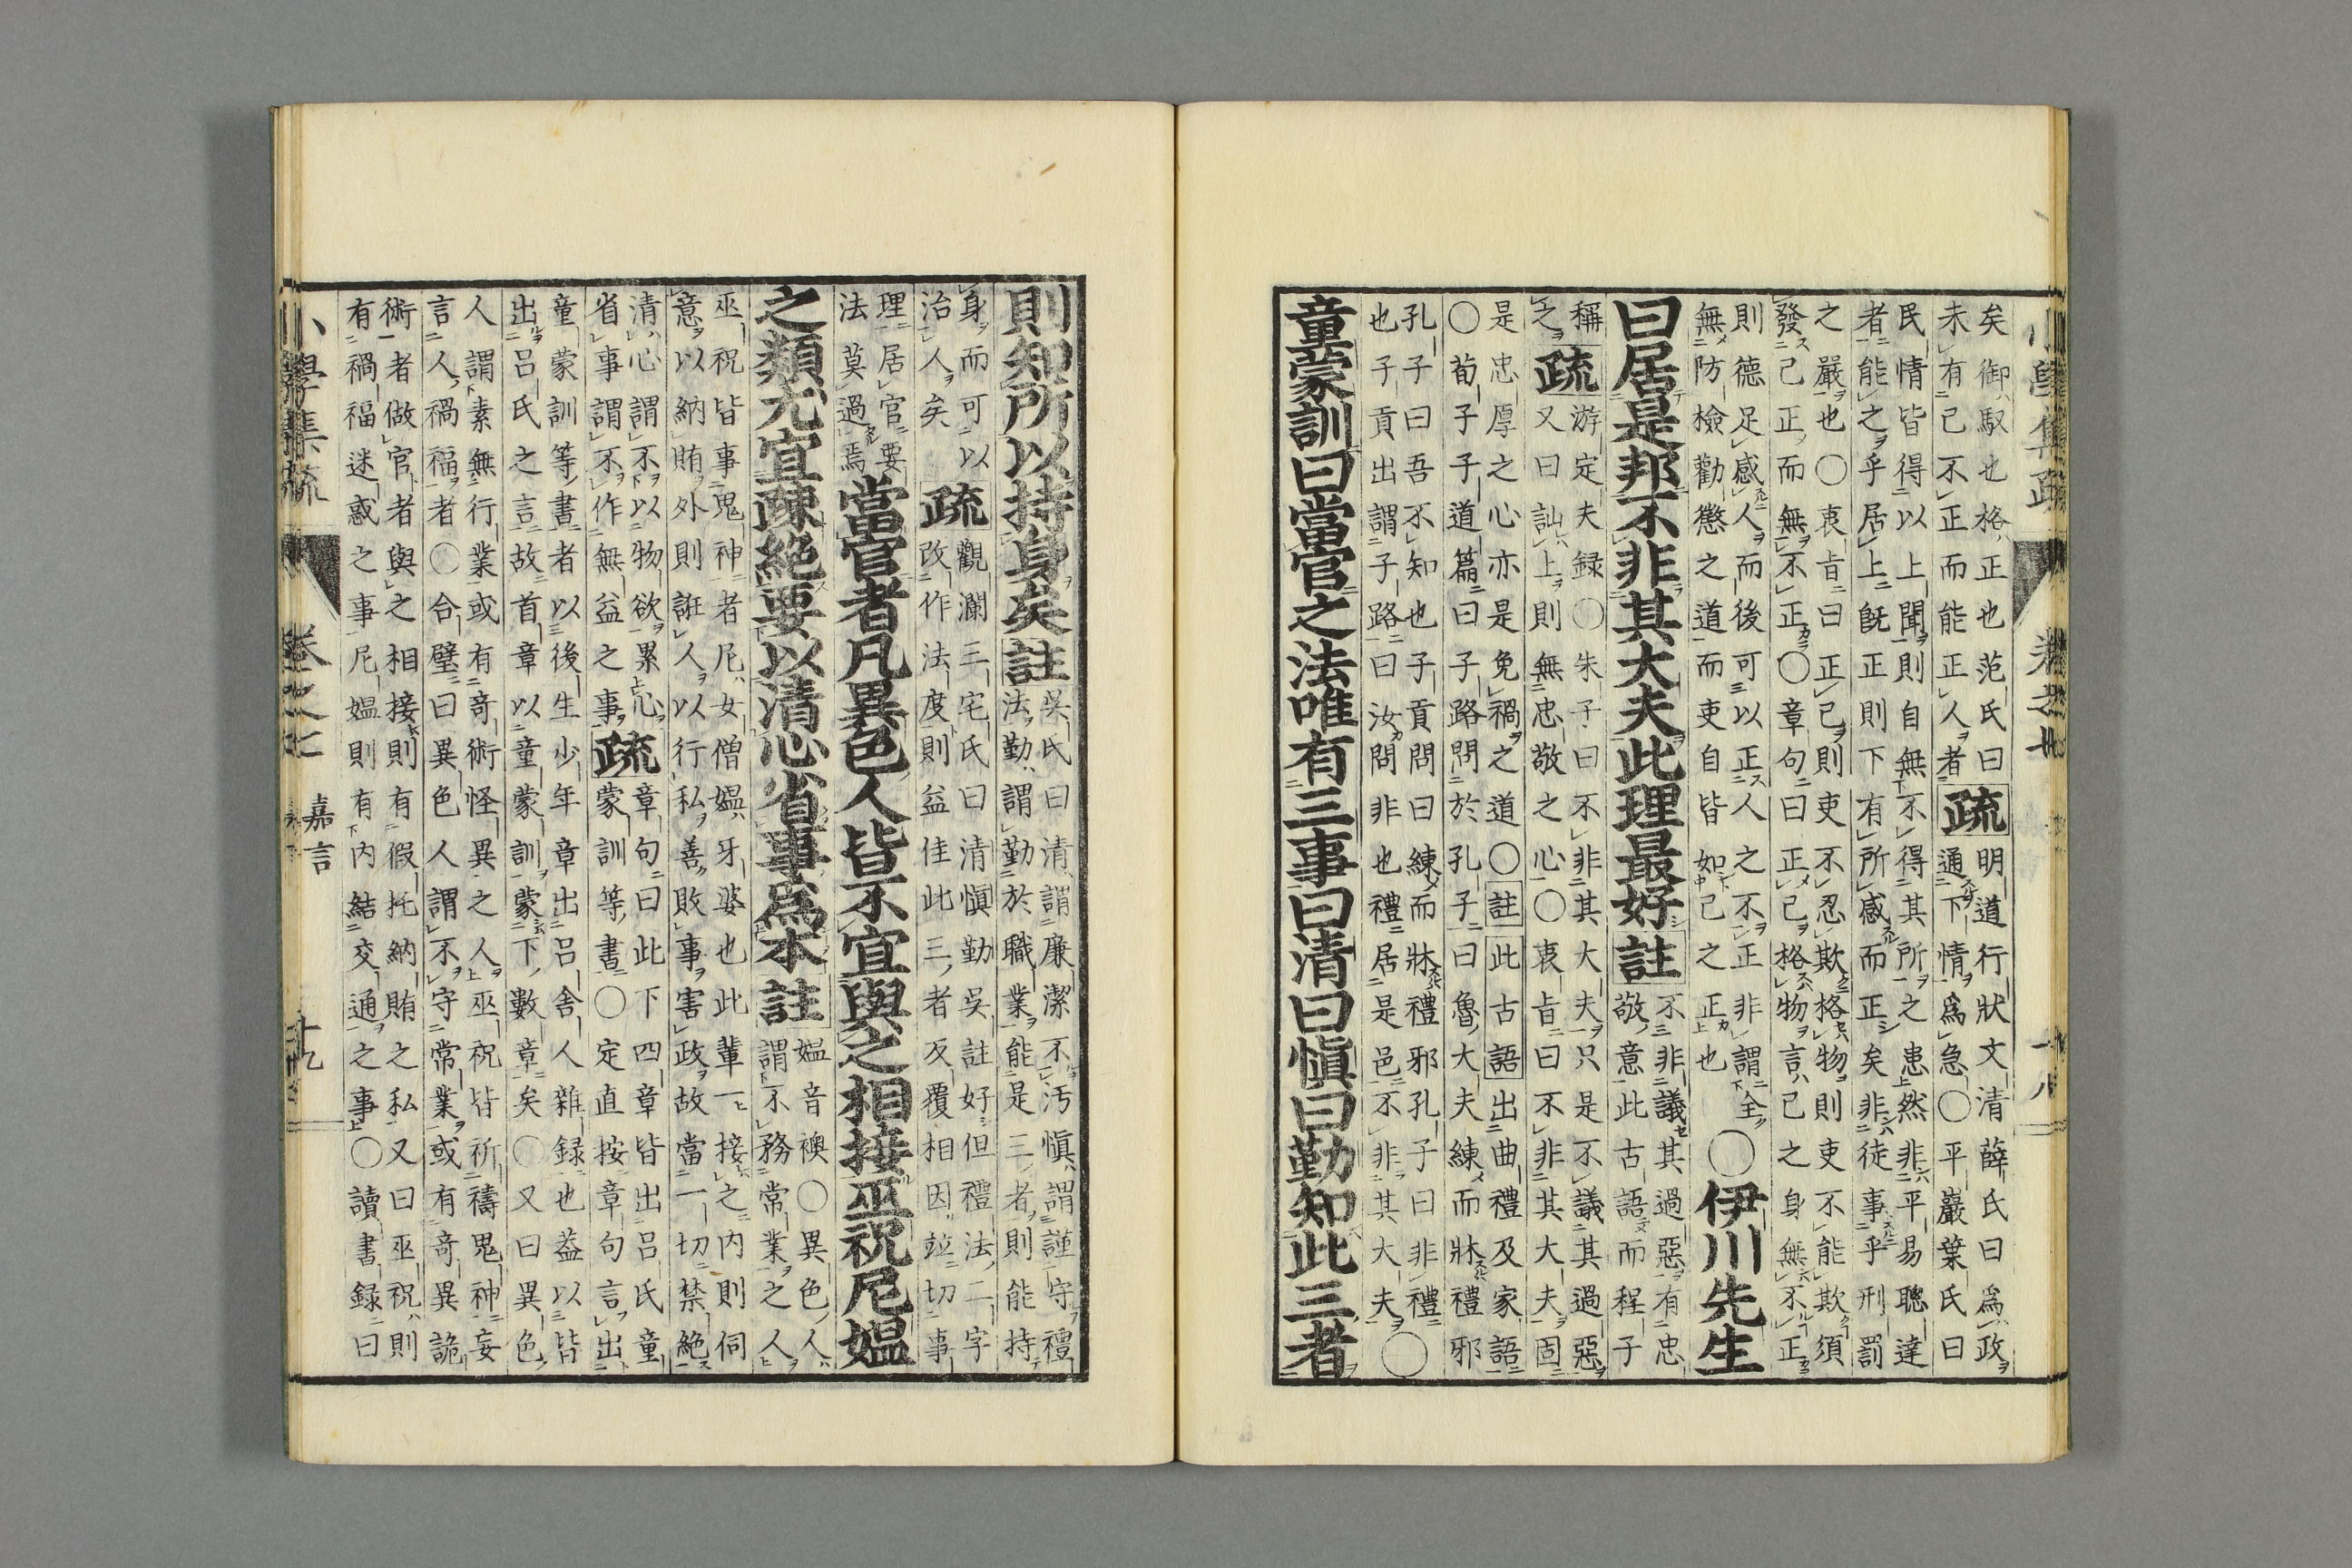 小學集疏 卷之七 十八
矣御馭也格正也范氏曰
未有己不正而能正人者
疏
明道行狀文清薛氏曰爲政
通下情爲急〇平巖葉氏曰
民情皆得以上聞則自無不得其所之患然非平易聰達
者能之乎居上既正則下有所感而正矣非徒事乎刑罰
之嚴也〇衷旨曰正己則吏不忍欺格物則吏不能欺須
發己正而無不正〇章句曰正己格物言己之身無不正
則德足感人而後可以正人之不正非謂全
無防檢勸懲之道而吏自皆如己之正也
〇伊川先生
曰居是邦不非其大夫此理最好註
不非議其過惡有忠
敬意此古語而程子
稱
之
疏
游定夫録〇朱子曰不非其大夫只是不議其過惡
又曰訕上則無忠敬之心〇衷旨曰不非其大夫固
是忠厚之心亦是免禍之道〇註此古語出曲禮及家語
〇荀子子道篇曰子路問於孔子曰魯大夫練而牀禮邪
孔子曰吾不知也子貢問曰練而牀禮邪孔子曰非禮
也子貢出謂子路曰汝問非也禮居是邑不非其大夫〇
童蒙訓曰當官之法唯有三事曰清曰愼曰勤知此三者
則知所以持身矣註
吳氏曰清謂廉潔不汚愼謂謹守禮
法勤謂勤於職業能是三者則能持
身而可以
治人矣
疏
觀瀾三宅氏曰清愼勤吳註好但禮法二字
改作法度則益佳此三者反覆相因竝切事
理居官要
法莫過焉
當官者凡異色人皆不宜與之相接巫祝尼媼
之類尤宜疎絶要以清心省事爲本註
媼音襖〇異色人
謂不務常業之人
巫祝皆事鬼神者尼女僧媼牙婆也此輩一接之內則伺
意以納賄外則誑人以行私善敗事害政故當一切禁絶
清心謂不以物欲累心
省事謂不作無益之事
疏
章句曰此下四章皆出呂氏童
蒙訓等書〇定直按章句言出
童蒙訓等書者以後生少年章出呂舍人雜録也葢以皆
出呂氏之言故首章以童蒙訓蒙下數章矣〇又曰異色
人謂素無行業或有奇術怪異之人巫祝皆祈禱鬼神妄
言人禍福者〇合璧曰異色人謂不守常業或有奇異詭
術者做官者與之相接則有假托納賄之私又曰巫祝則
有禍福迷惑之事尼媼則有內結交通之事〇讀書録曰
小學集疏 卷之七 嘉言 十九